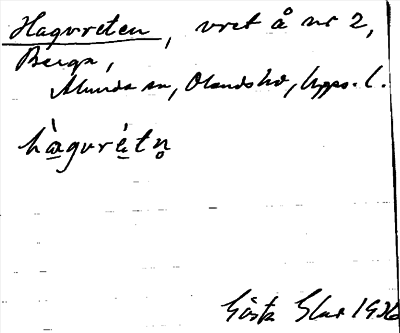 Hagvreten, vret å nr 2,
Berga,
Almunda sn, Olandshd, Upps. l.
hàgvrétn̥
Gösta 1936